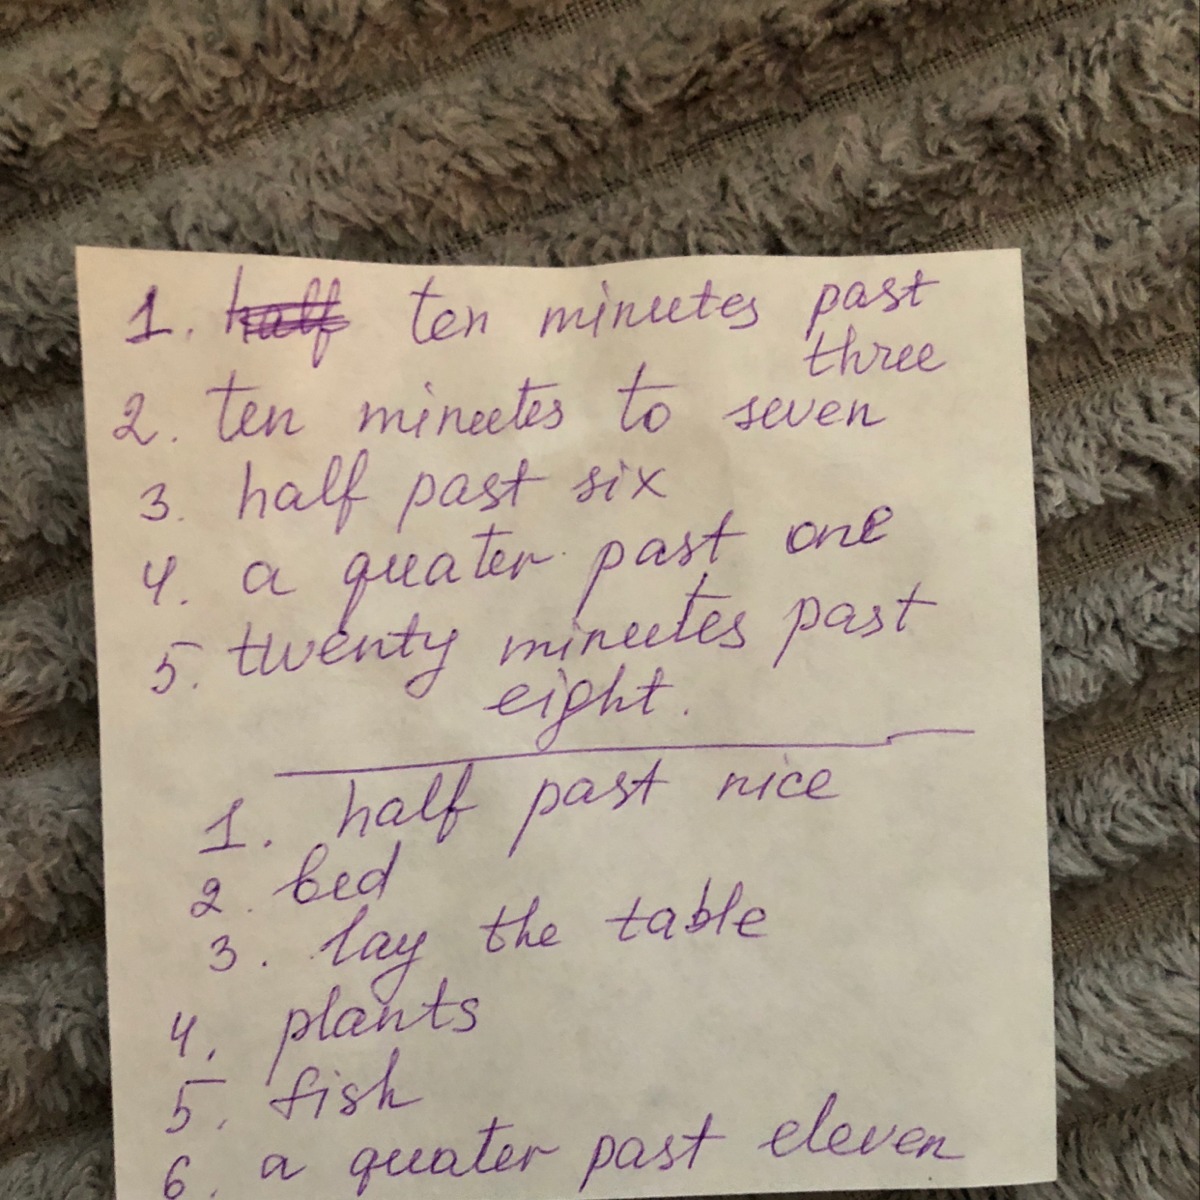 1. half ten minutes past
three
2. ten minutes to seven
3. half past six
4. a quater past one
5. twenty minutes past
eight.
1. half past nice
2. bed
3. lay the table
4. plants
5. fish
6. a quater past eleven